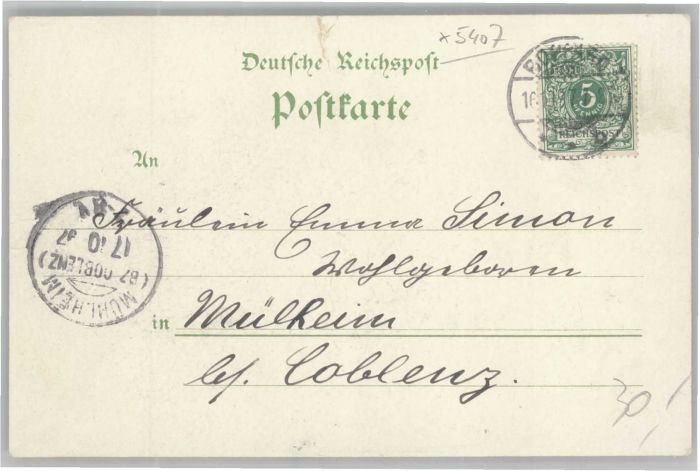 x 5407
Deutsche Reichspost
Postkarte
5
REICHSPOST
An
Fräulein Emma Simon
Wohlgeboren
in Mülheim
bf. Coblenz.
MÜHLHEIM
(BZ COBLENZ)
17 10 97
30,-